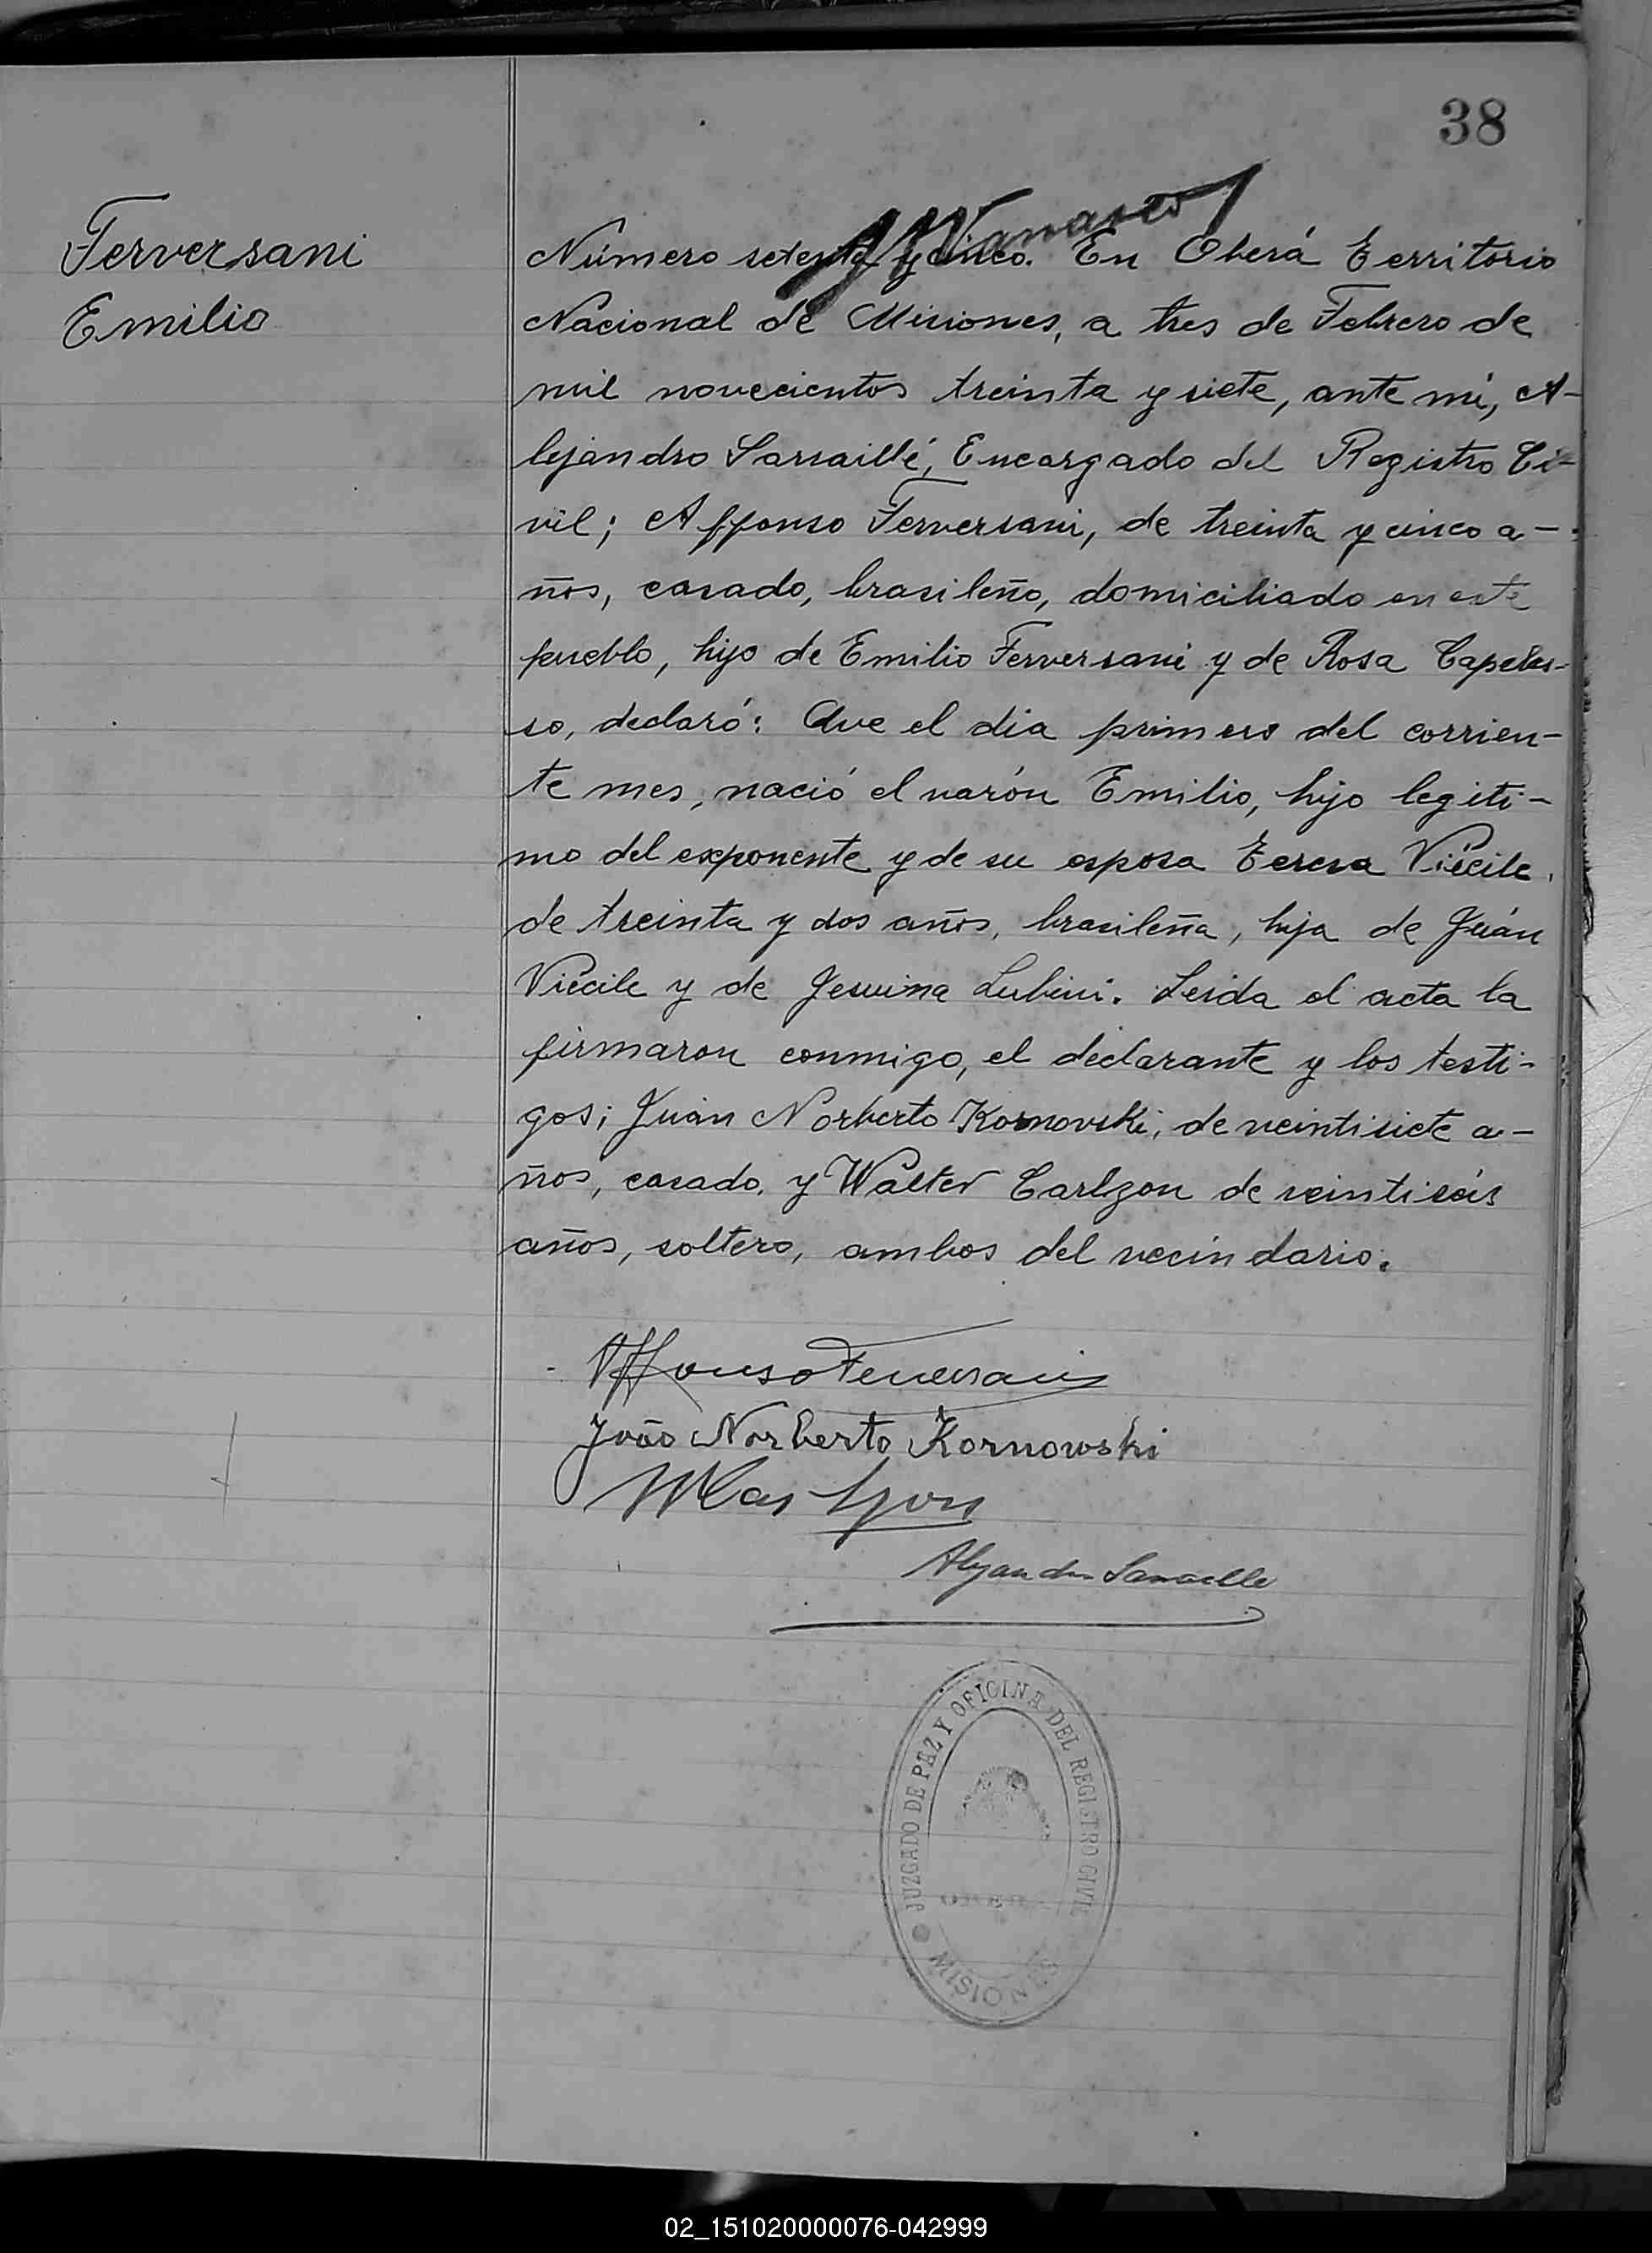 38
Ferversani
Emilio
Número setenta y cinco. En Oberá Territorio
Nacional de Misiones, a tres de Febrero de
mil novecientos treinta y siete, ante mi, A-
lejandro Sarraillé, Encargado del Registro Ci-
vil; Affonso Ferversani, de treinta y cinco a-
ños, casado, brasileño, domiciliado en este
pueblo, hijo de Emilio Ferversani y de Rosa
so, declaró: Que el dia primero del corrien-
te mes, nació el varón Emilio, hijo legiti-
mo del exponente y de su esposa Teresa Viécile,
de treinta y dos años, brasileña, hija de Juán
Viécile y de Jesuina Lubini. Leida el acta la
firmaron conmigo, el declarante y los testi-
gos; Juán Norberto Kornovski, de veintisiete a-
ños, casado, y Walter Carlzon de veintiseis
años, soltero, ambos del vecindario.
Affonso Ferversani
João Norberto Kornowski
Alejandro Sarraille
JUZGADO DE PAZ Y OFICINA DEL REGISTRO CIVIL
OBERA
MISIONES
02_151020000076-042999